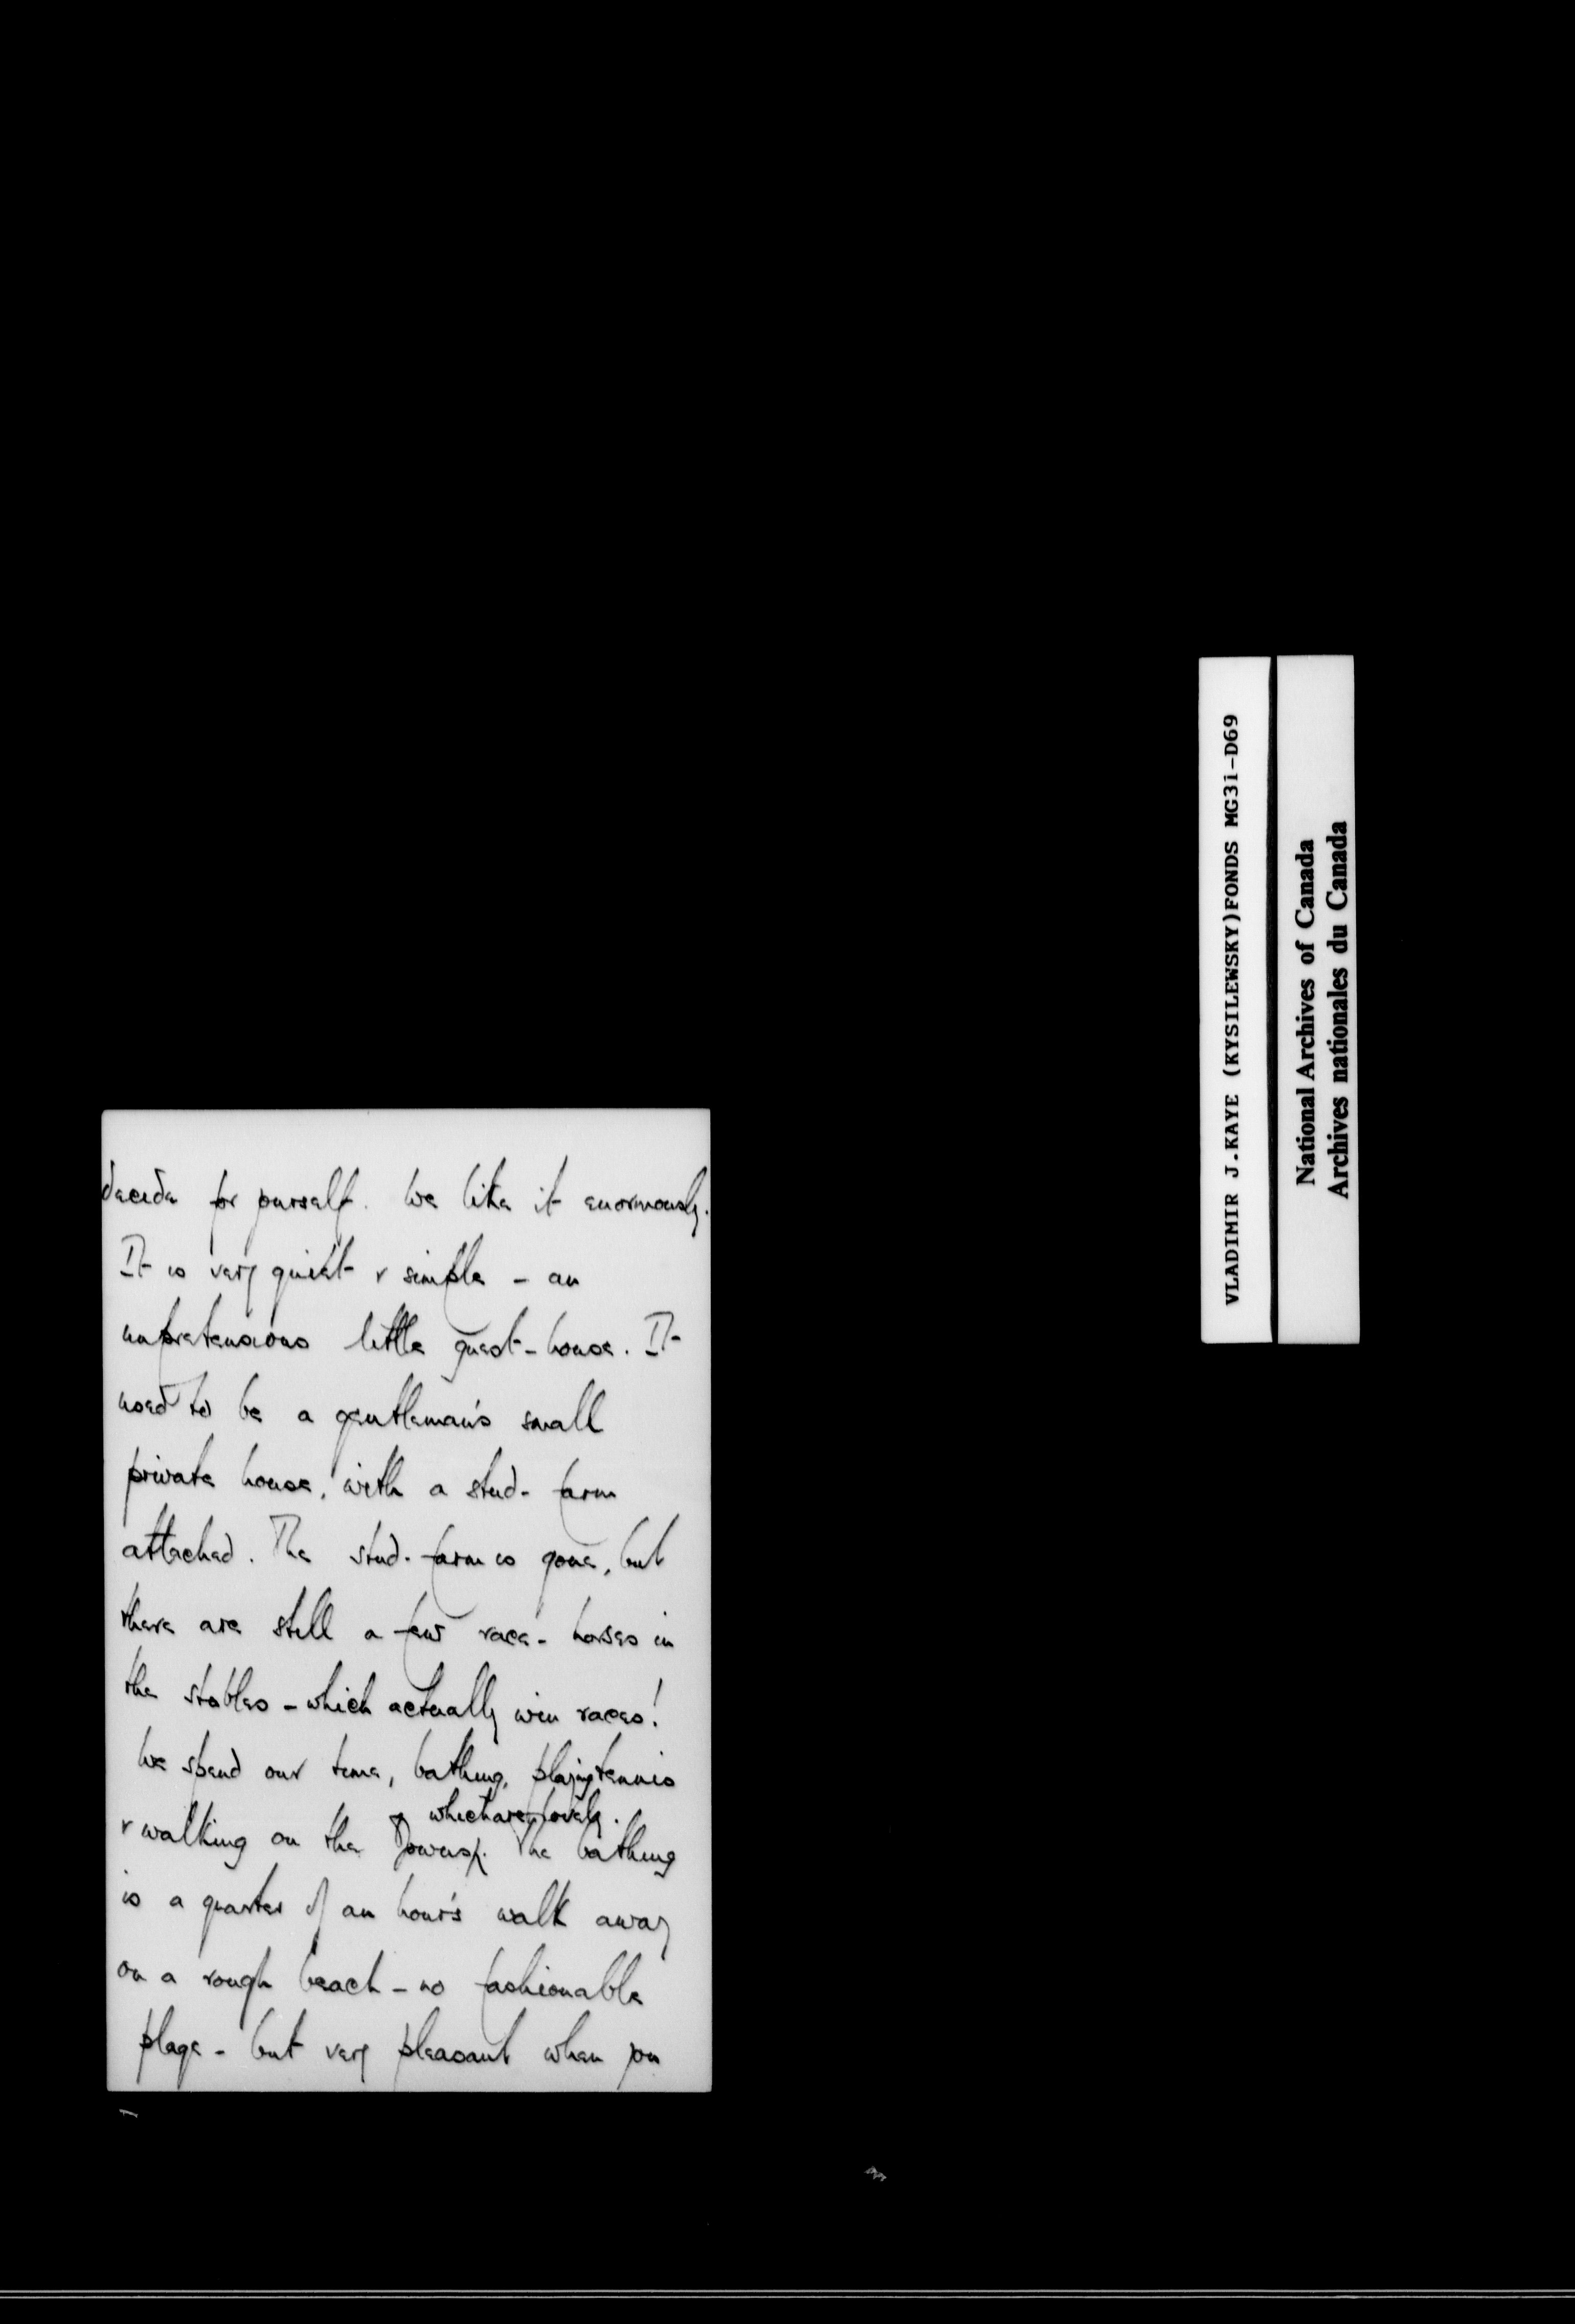 decide for yourself. We like it enormously.
It is very quiet & simple - an
unpretensious little guest-house. It
used to be a gentleman's small
private house, with a stud-farm
attached. The stud-farm is gone, but
there are still a few race-horses in
the stables - which actually win races!
We spend our time, bathing, playing tennis
which are lovely.
& walking on the Downs. The bathing
is a quarter of an hour's walk away
on a rough beach - no fashionable
plage - but very pleasant when you
VLADIMIR J.KAYE (KYSILEWSKY)FONDS MG31-D69
National Archives of Canada
Archives nationales du Canada